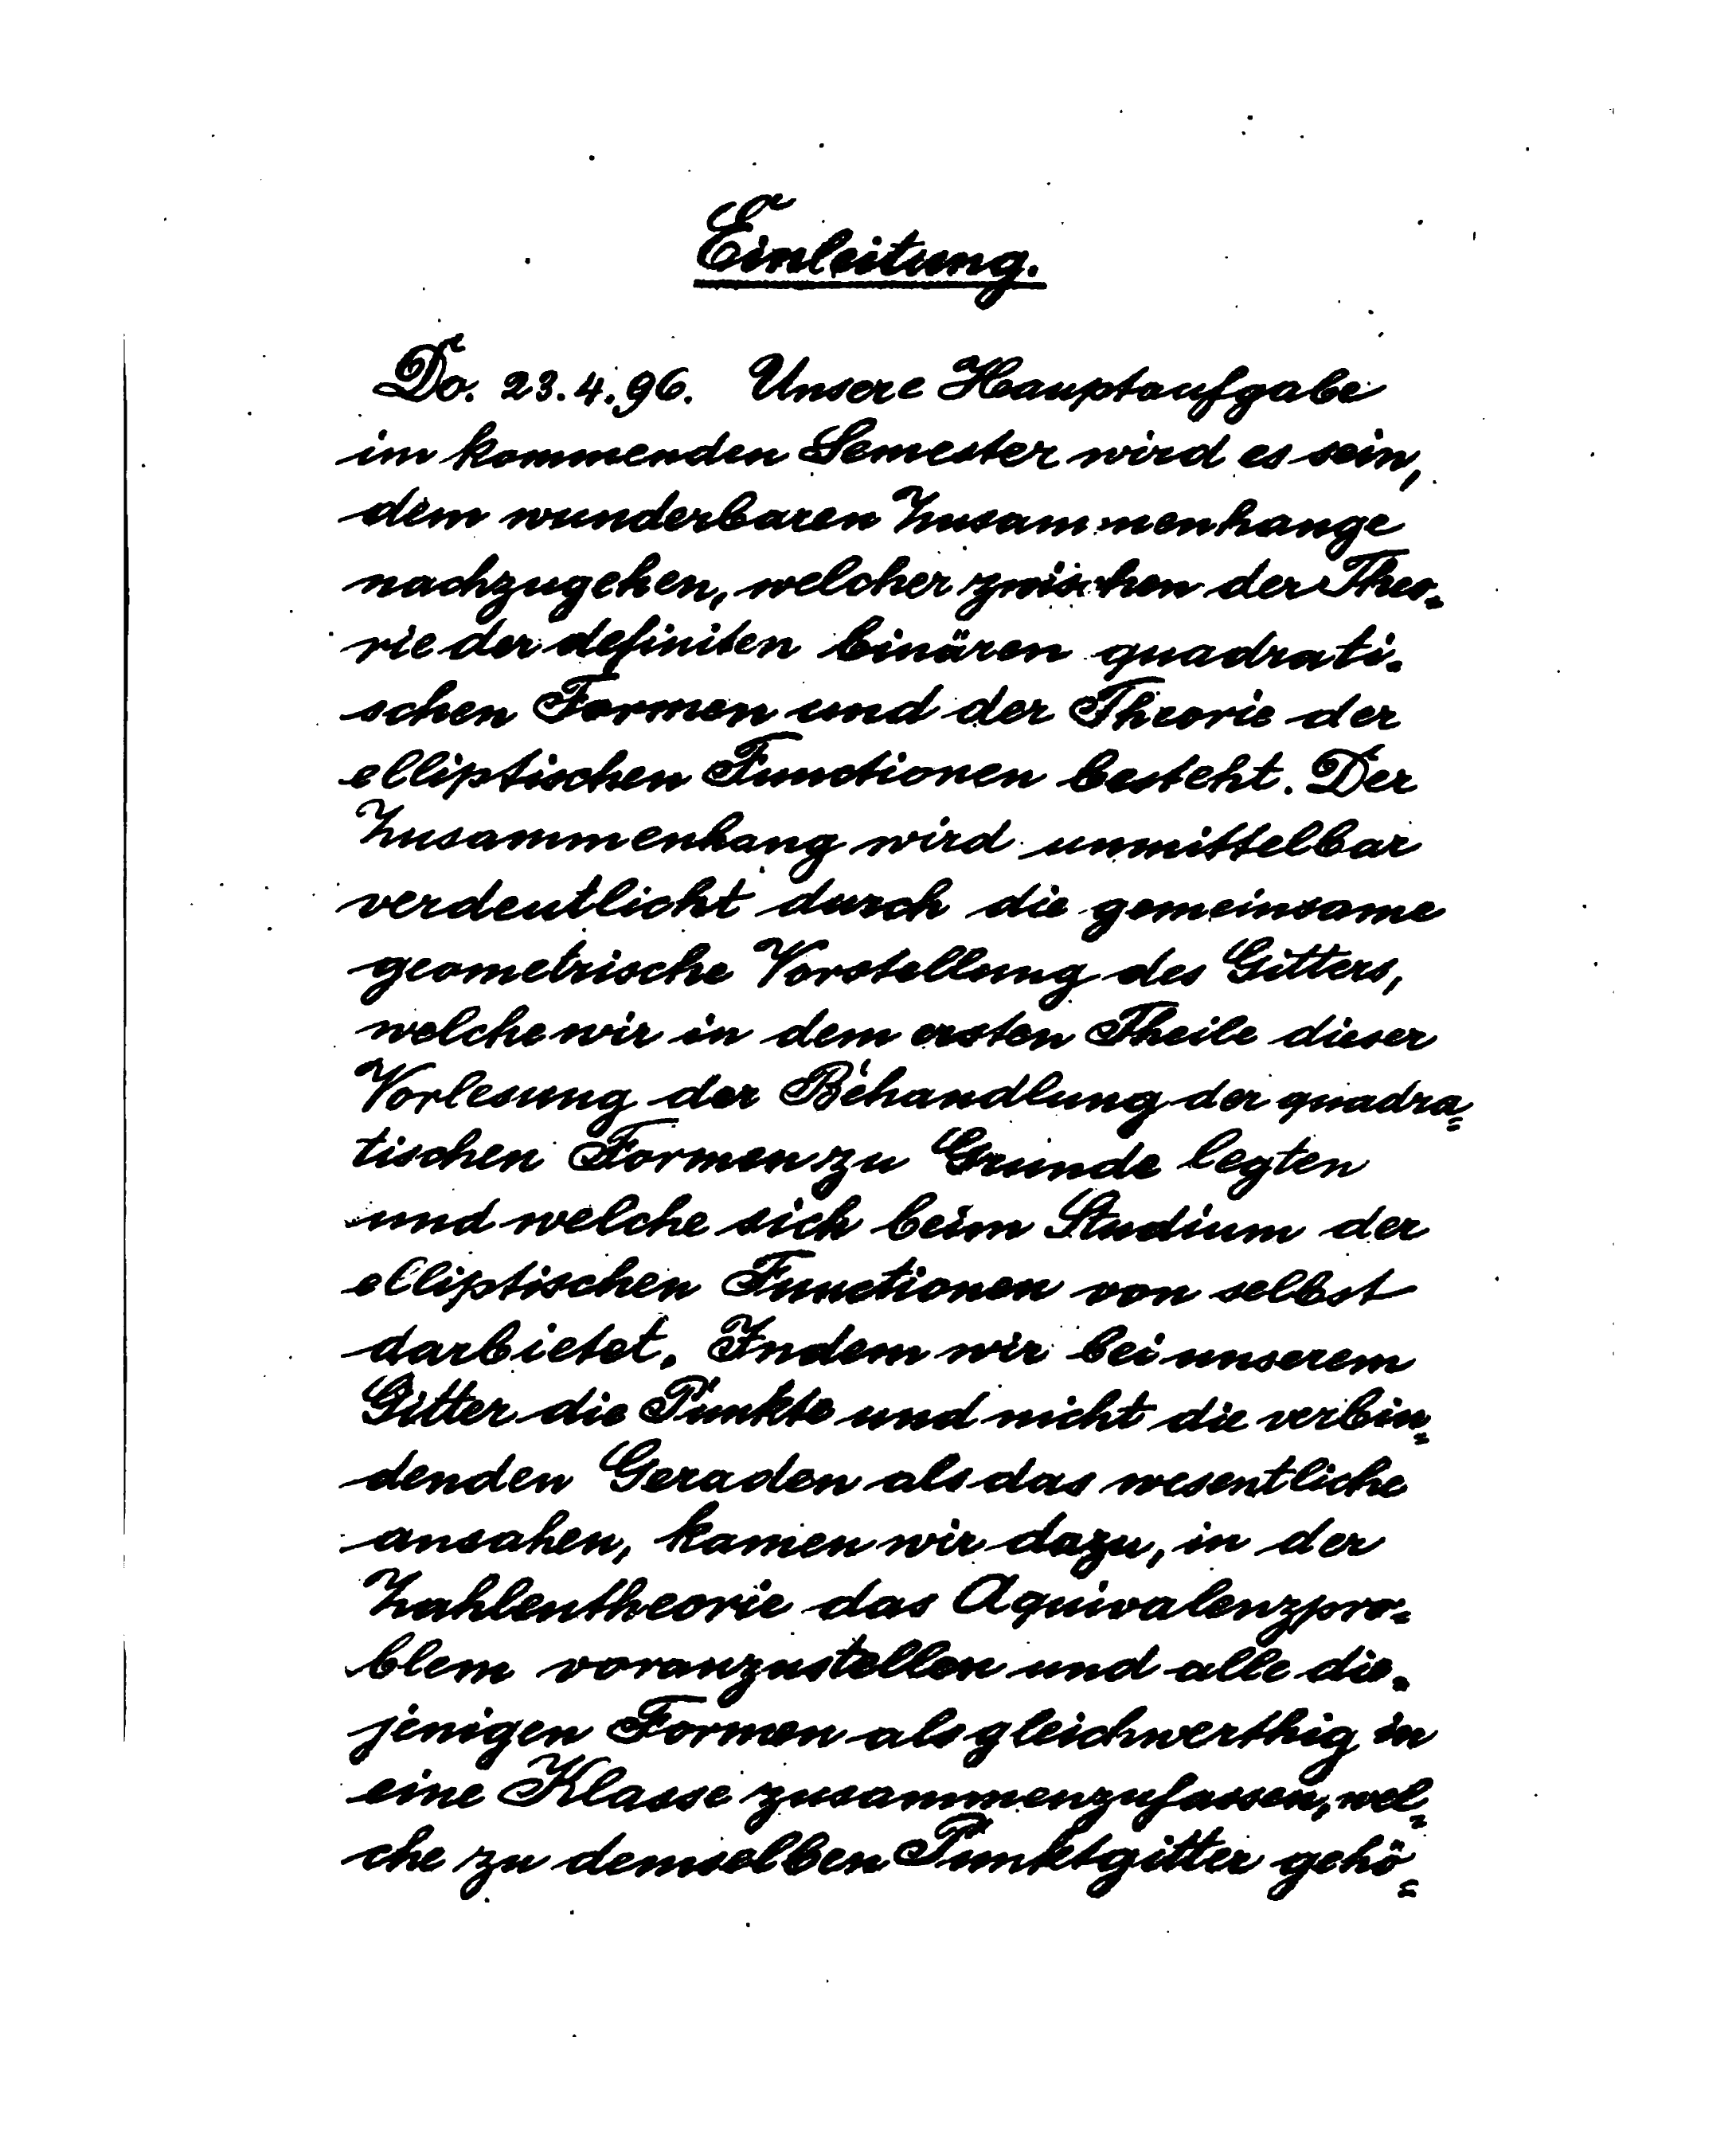 Einleitung.
Do. 23.4.96. Unsere Hauptaufgabe
im kommenden Semester wird es sein,
dem wunderbaren Zusammenhange
nachzugehen, welcher zwischen der Theo-
rie der definiten binären quadrati-
schen Formen und der Theorie der
elliptischen Functionen besteht. Der
Zusammenhang wird unmittelbar
verdeutlicht durch die gemeinsame
geometrische Vorstellung des Gitters,
welche wir in dem ersten Theile dieser
Vorlesung der Behandlung der quadra-
tischen Formen zu Grunde legten
und welche sich beim Studium der
elliptischen Functionen von selbst
darbietet. Indem wir bei unserem
Gitter die Punkte und nicht die verbin-
denden Geraden als das wesentliche
ansahen, kamen wir dazu, in der
Zahlentheorie das Aquivalenzpro-
blem voranzustellen und alle die-
jenigen Formen als gleichwerthig in
eine Klasse zusammenzufassen, wel-
che zu demselben Punktgitter gehö-